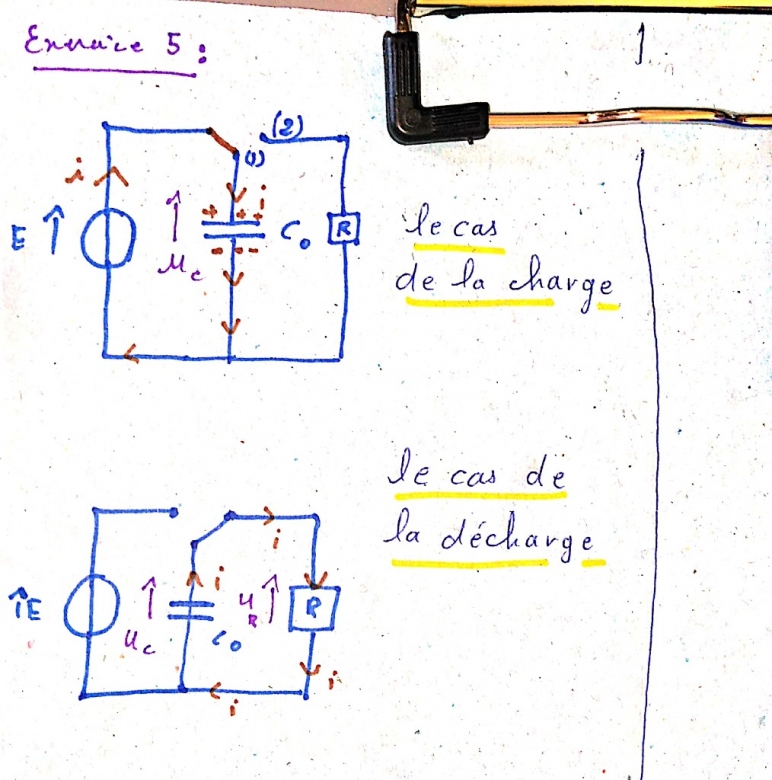 Exercice 5 :
1
(2)
(1)
i
i
+ + +
E
u_c
C_0
R
- - -
le cas
de la charge
le cas de
la décharge
i
E
i
u_c
C_0
u_R
R
i
i